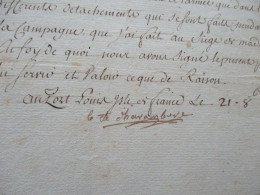 différents detachements que se sont faits pendant
la Campagne que j'ai fait au siege de mad
En foy de quoi nous avons signé le present
lui Servir et Valoir ce que de Raison.
au Port Louis Isle de france Le 21. 8b